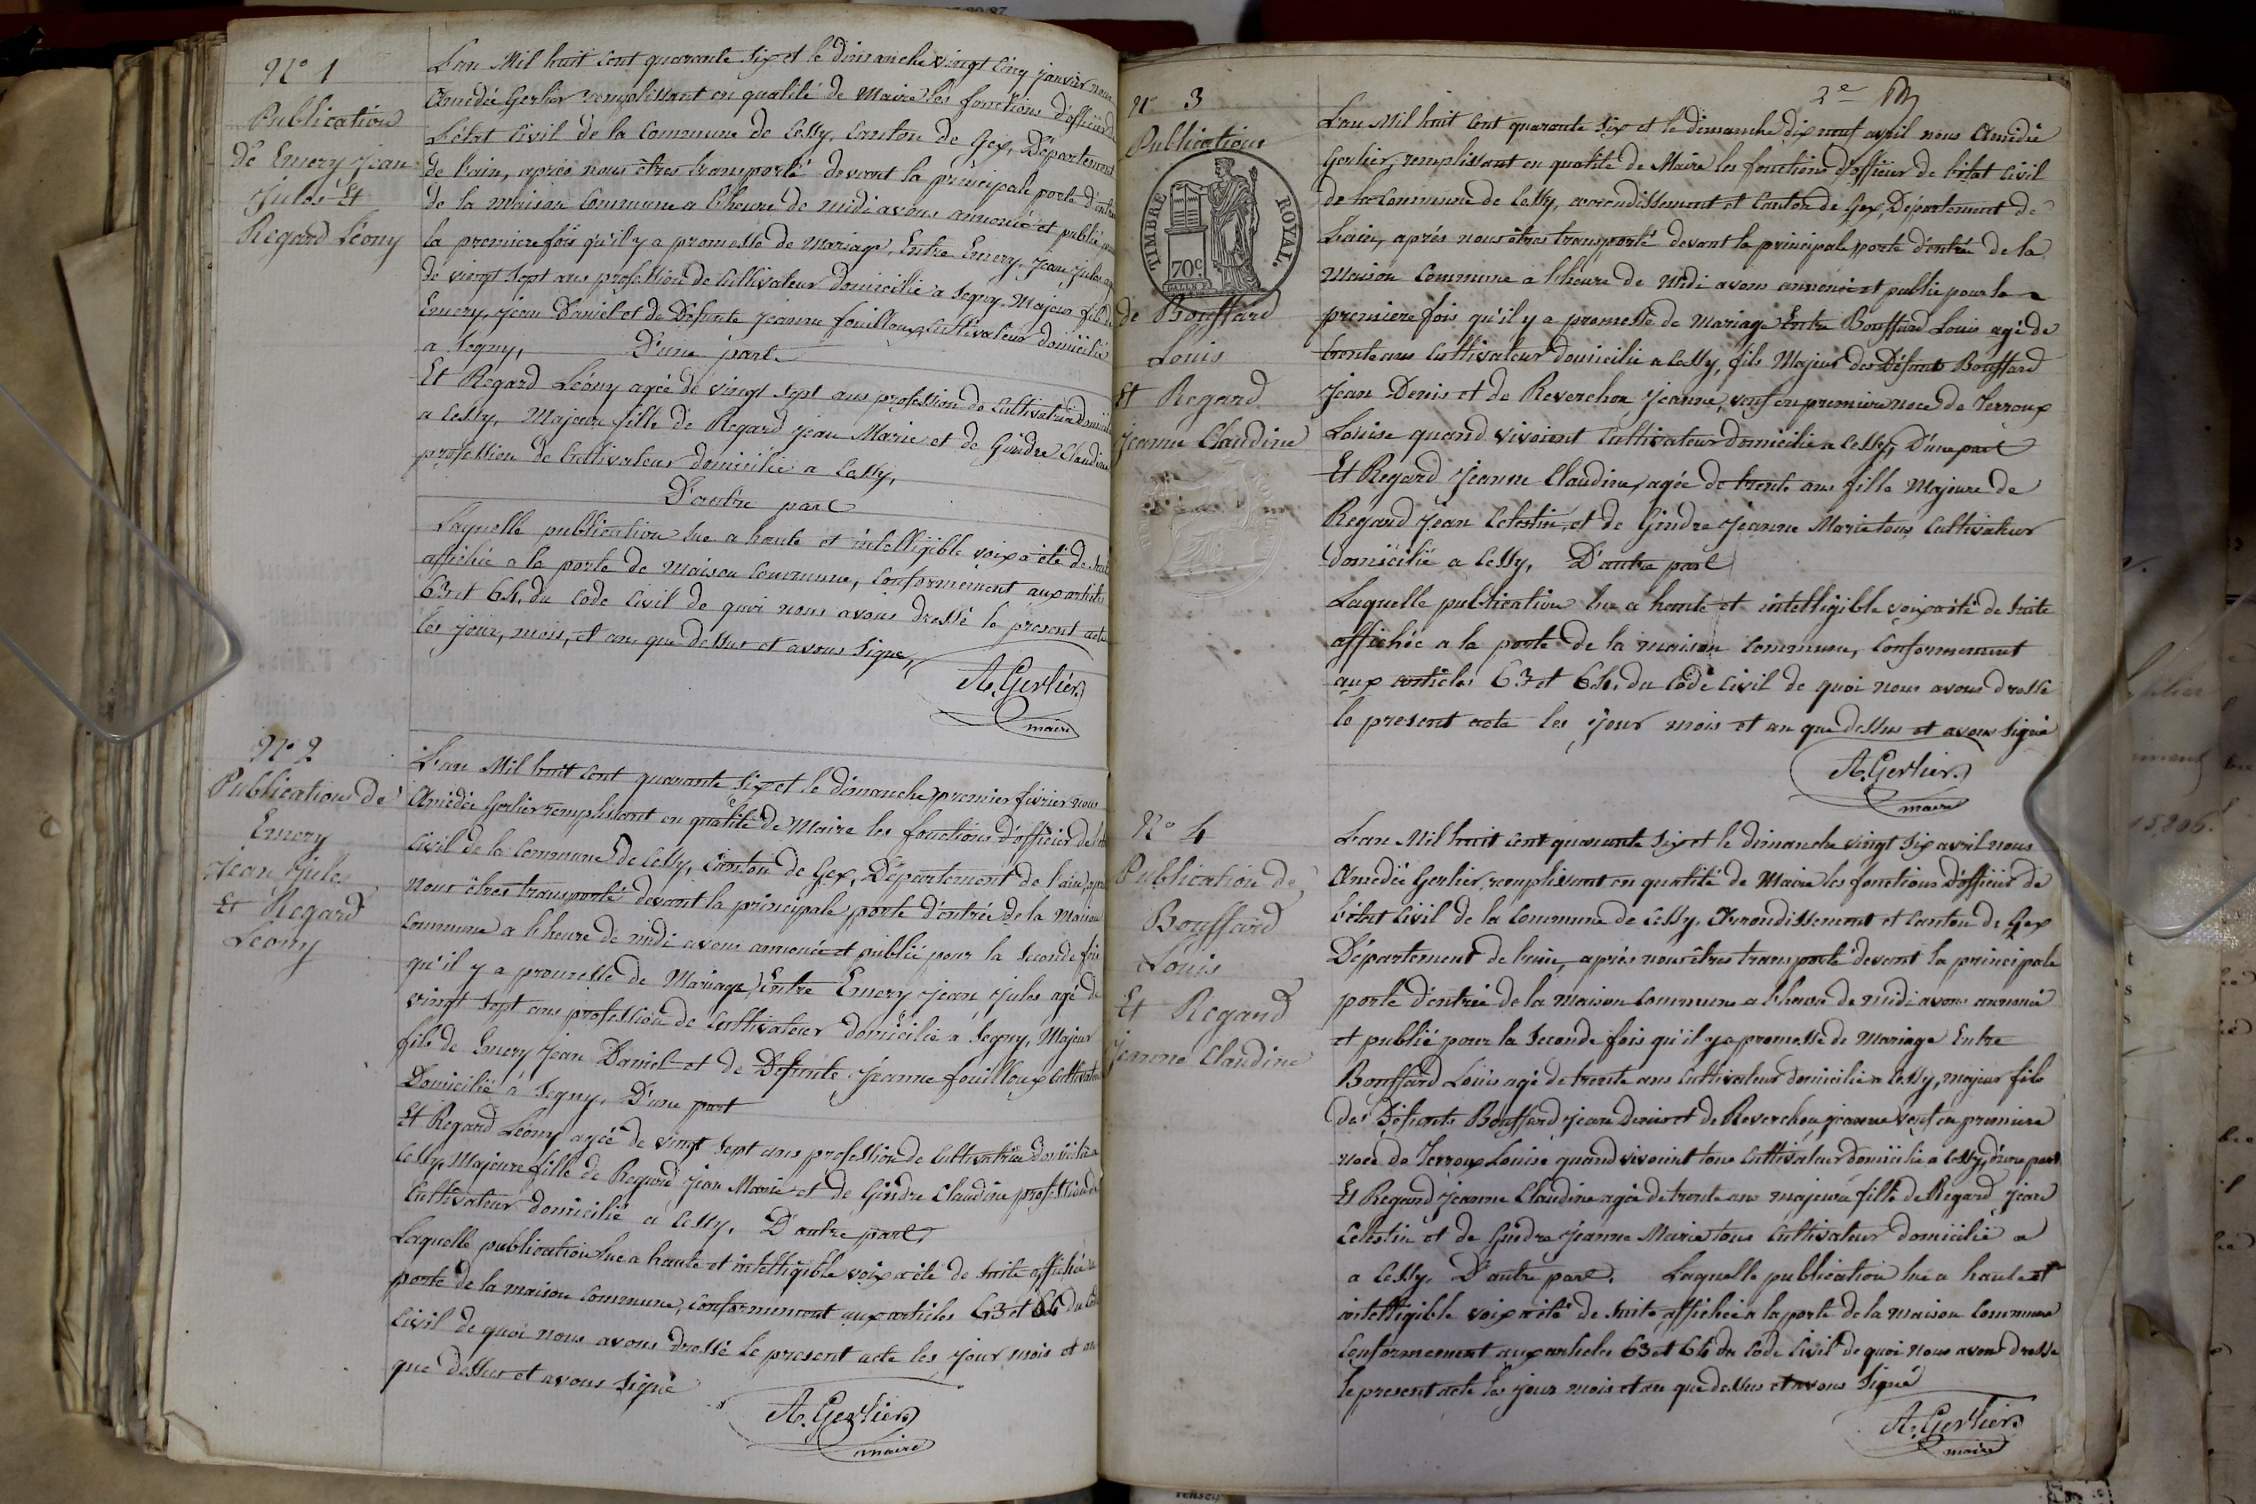 N° 1
Publication
D'Emery Jean
Jules Et
Regard Léony
L'an Mil huit cent quarante six et le dimanche vingt cinq janvier nous
Amédée Gerlier remplissant en qualité de Maire les fonctions d'officier de
L'état Civil de la Commune de Cessy, Canton de Gex, Département
de l'ain, après nous êtres transporté devant la principale porte d'entrée
de la maison Commune a l'heure de midi avons annoncé et publié pour
la premiere fois qu'il y a promesse de Mariage, Entre Emery, Jean Jules agé
de vingt sept ans profession de Cultivateur domicilié a Segny, Majeur fils de
Emery, Jean Daniel et de Défunte Jeanne fouilloux, Cultivateur domicilié
a Segny, D'une part
Et Regard Léony agée de vingt sept ans profession de Cultivatrice domicilié
a Cessy, Majeure fille de Regard Jean Marie et de Gindre Claudine
profession de Cultivateur domicilié a Cessy,
D'autre part
Laquelle publication lue a haute et intelligible voix a été de suite
affichée a la porte de maison Commune, Conformément aux articles
63 et 64, du Code Civil de quoi nous avons dressé le present acte
les jour, mois, et an que dessus et avons signé,
A. Gerlier
maire
N° 2
Publication de
Emery
Jean Jules
Et Regard
Leony
L'an Mil huit cent quarante six et le dimanche premier février nous
Amédée Gerlier remplissant en qualité de Maire les fonctions d'officier de l'état
Civil de la Commune de Cessy, Canton de Gex, Département de l'ain, après
nous êtres transporté devant la principale porte d'entrée de la Maison
Commune a l'heure de midi avons annoncé et publié pour la seconde fois
qu'il y a promesse de Mariage, Entre Emery Jean Jules agé de
vingt sept ans profession de Cultivateur domicilié a Segny, Majeur
fils de Emery Jean Daniel et de Défunte Jeanne fouilloux Cultivateur
Domicilié a Segny, D'une part
Et Regard Léony agée de vingt sept ans profession de Cultivatrice domicilié a
Cessy, Majeure fille de Regard Jean Marie et de Gindre Claudine profession de
Cultivateur domicilié a Cessy, D'autre part,
Laquelle publication lue a haute et intelligible voix a été de suite affichée a la
porte de la maison Commune, Conformement aux articles 63 et 64 du Code
Civil de quoi nous avons dressé le present acte les jour mois et an
que dessus et avons signé
A. Gerlier
maire
2e
N° 3
Publication
TIMBRE ROYAL.
70c
de Bouffard
Louis
Et Regard
Jeanne Claudine
L'an Mil huit cent quarante six et le dimanche dix neuf avril nous Amédée
Gerlier, remplissant en qualité de Maire les fonctions d'officier de l'état Civil
de la Commune de Cessy, arrondissement et Canton de Gex, Département de
L'ain, après nous êtres transporté devant la principale porte d'entrée de la
Maison Commune a l'heure de Midi avons annoncé et publié pour la
premiere fois qu'il y a promesse de Mariage Entre Bouffard Louis agé de
trente ans Cultivateur domicilié a Cessy, fils Majeur des Défunts Bouffard
Jean Denis et de Reverchon Jeanne, veuf en premiere noce de Terroux
Louise quand vivoient Cultivateur domicilié a Cessy, D'une part
Et Regard Jeanne Claudine, agée de trente ans fille Majeure de
Regard Jean Celestin, et de Gindre Jeanne Marie tous Cultivateur
domicilié a Cessy, D'autre part
Laquelle publication lue a haute et intelligible voix a été de suite
affichée a la porte de la maison Commune, Conformement
aux articles 63 et 64, du Code Civil de quoi nous avons dressé
le present acte les jour mois et an que dessus et avons signé
A. Gerlier
maire
N° 4
Publication de
Bouffard
Louis
Et Regard
Jeanne Claudine
L'an Mil huit cent quarante six et le dimanche vingt six avril nous
Amédée Gerlier, remplissant en qualité de Maire les fonctions d'officier de
l'état Civil de la Commune de Cessy, Arrondissement et Canton de Gex
Département de l'ain, après nous êtres transporté devant la principale
porte d'entrée de la maison Commune a l'heure de midi avons annoncé
et publié pour la seconde fois qu'il y a promesse de Mariage Entre
Bouffard Louis agé de trente ans Cultivateur domicilié a Cessy, majeur fils
des Défunts Bouffard Jean Denis et de Reverchon Jeanne veuf en premiere
noce de Terroux Louise quand vivoient tous Cultivateur domicilié a Cessy, d'une part
Et Regard Jeanne Claudine agée de trente ans majeure fille de Regard Jean
Celestin et de Gindre Jeanne Marie tous Cultivateur domicilié a
a Cessy, D'autre part, Laquelle publication lue a haute et
intelligible voix a été de suite affichée a la porte de la maison Commune
Conformement aux articles 63 et 64 du Code Civil de quoi nous avons dressé
le present acte les jour mois et an que dessus et avons signé
A. Gerlier
maire